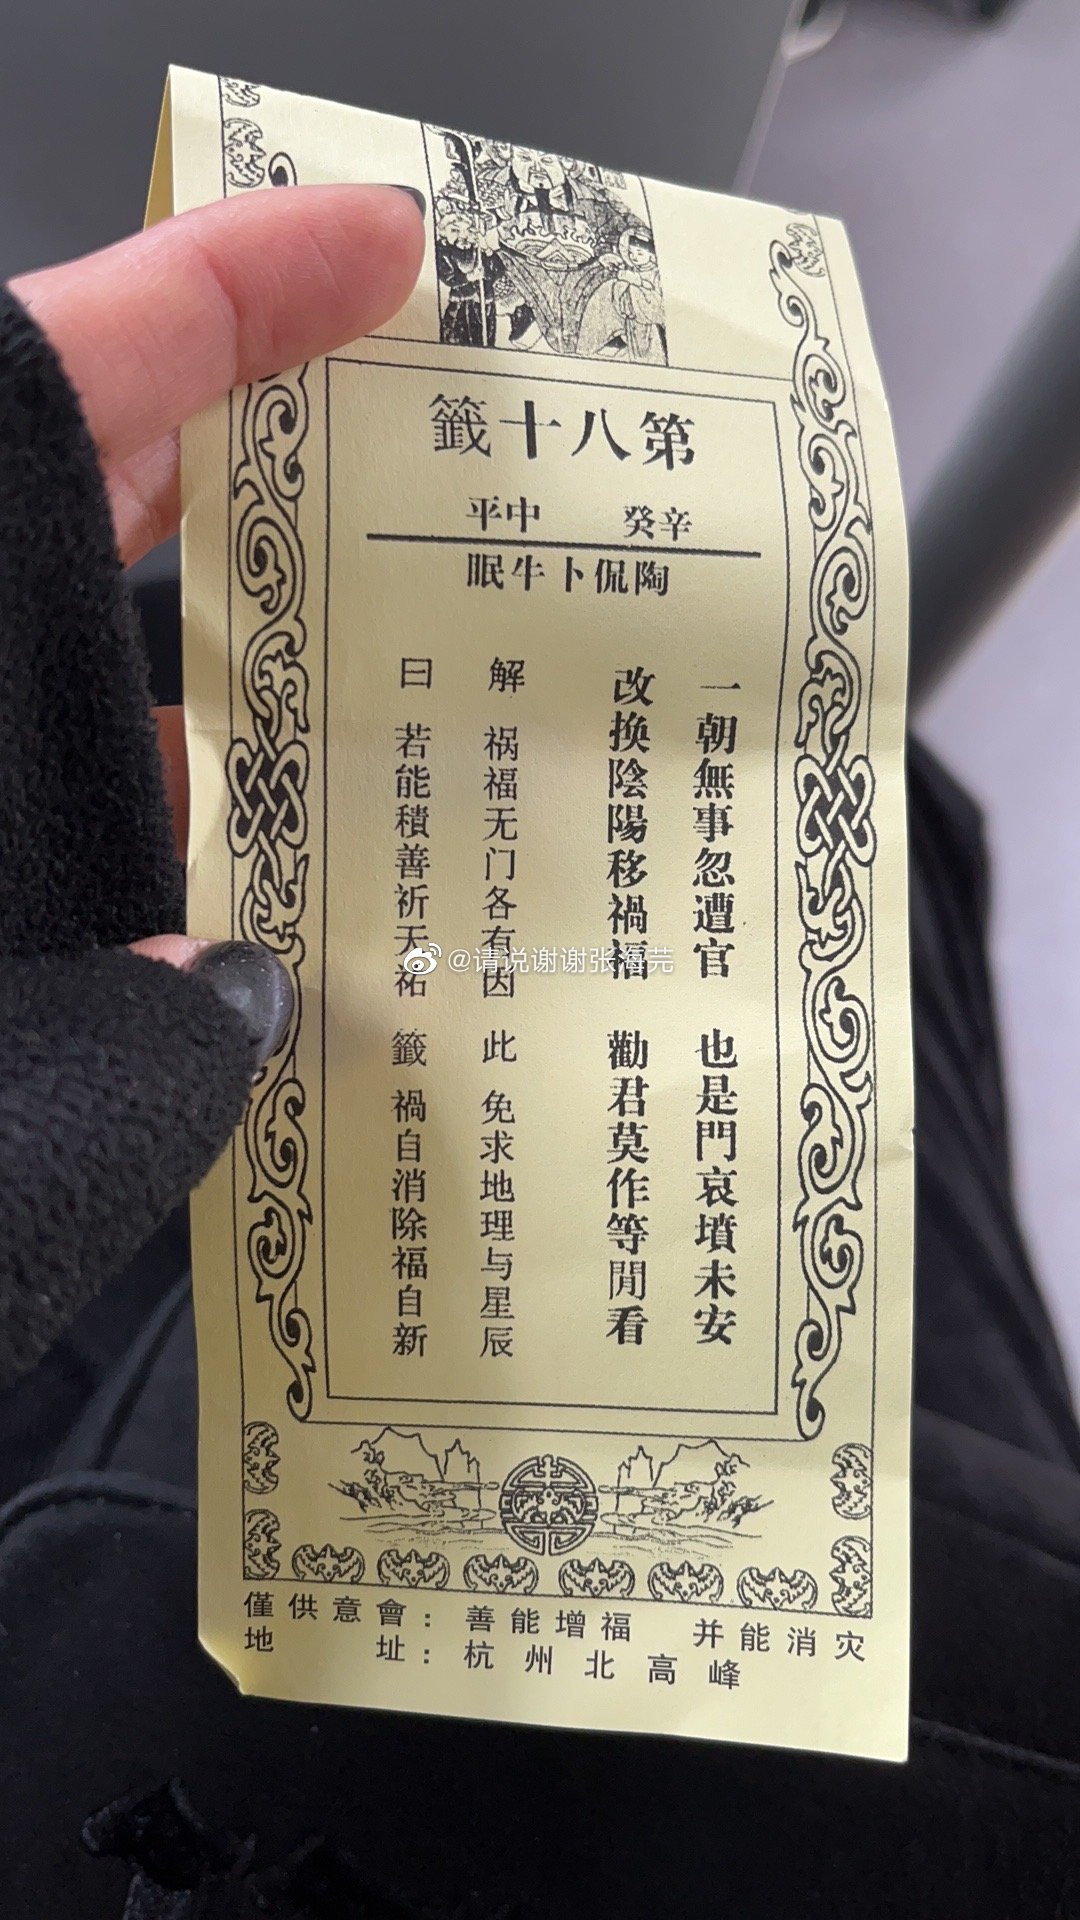 第八十籤
辛癸 中平
陶侃卜牛眠
一朝無事忽遭官 也是門哀墳未安
改換陰陽移禍福 勸君莫作等閒看
解 祸福无门各有因 此 免求地理与星辰
曰 若能積善祈天祐 籤 禍自消除福自新
僅供意會：善能增福 并能消灾
地址：杭州北高峰
@请说谢谢张海芫